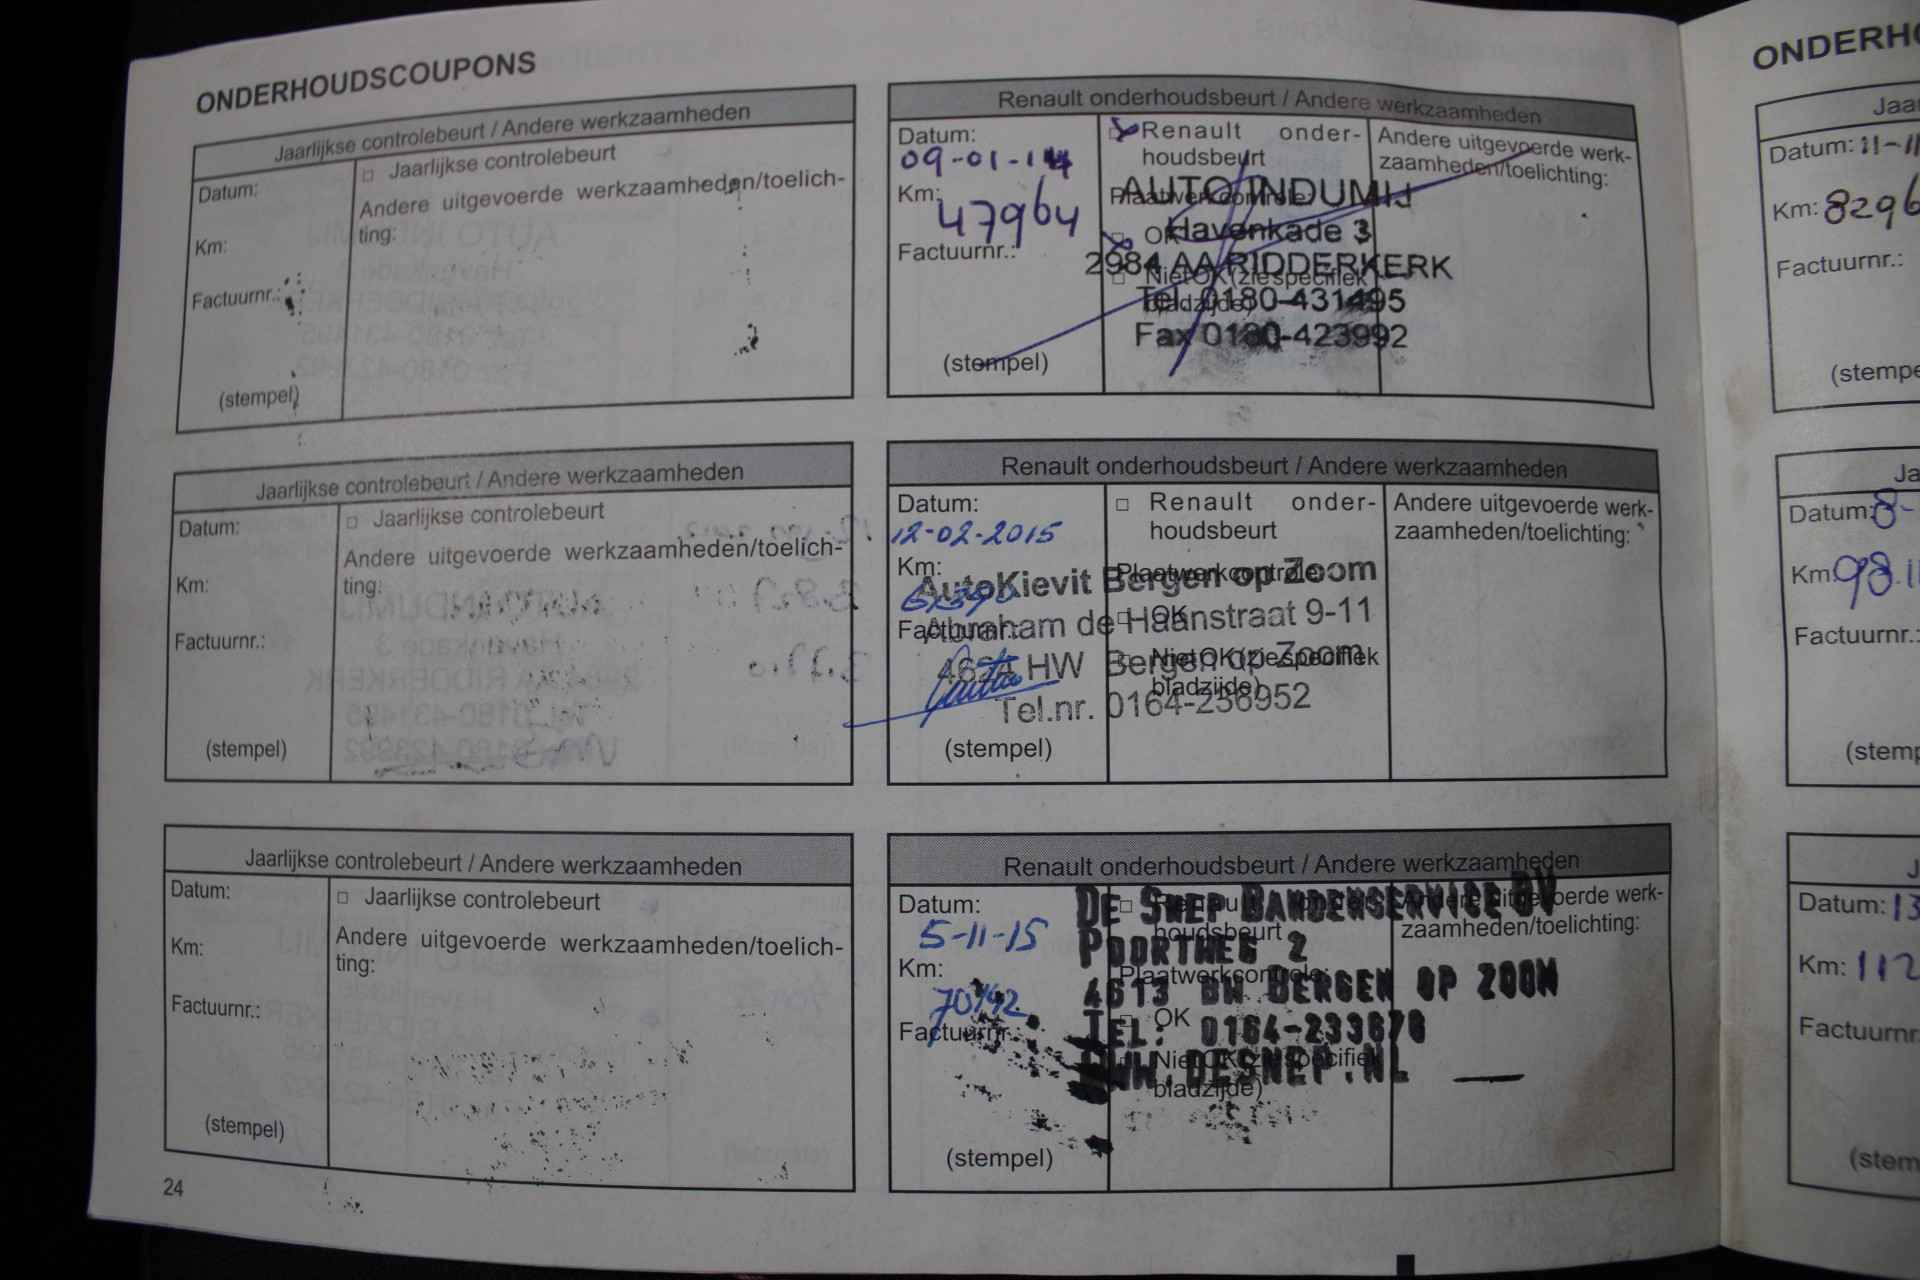 ONDERHOUDSCOUPONS
Jaarlijkse controlebeurt / Andere werkzaamheden
Datum:
Km:
Factuurnr.:
(stempel)
□ Jaarlijkse controlebeurt
Andere uitgevoerde werkzaamheden/toelich-
ting:
Renault onderhoudsbeurt / Andere werkzaamheden
Datum:
09-01-14
Km:
47964
Factuurnr.:
(stempel)
Renault onder-
houdsbeurt
Plaatwerkcontrole:
OK
□ Niet OK (zie specifiek
bladzijde)
AUTO INDUMIJ
Havenkade 3
2984 AA RIDDERKERK
Tel. 0180-431495
Fax 0180-423992
Andere uitgevoerde werk-
zaamheden/toelichting:
Jaarlijkse controlebeurt / Andere werkzaamheden
Datum:
Km:
Factuurnr.:
(stempel)
□ Jaarlijkse controlebeurt
Andere uitgevoerde werkzaamheden/toelich-
ting:
Renault onderhoudsbeurt / Andere werkzaamheden
Datum:
12-02-2015
Km:
Factuurnr.:
(stempel)
□ Renault onder-
houdsbeurt
Plaatwerkcontrole:
□ OK
□ Niet OK (zie specifiek
bladzijde)
AutoKievit Bergen op Zoom
Abraham de Haanstraat 9-11
4624 HW Bergen op Zoom
Tel.nr. 0164-256952
Andere uitgevoerde werk-
zaamheden/toelichting:
Jaarlijkse controlebeurt / Andere werkzaamheden
Datum:
Km:
Factuurnr.:
(stempel)
□ Jaarlijkse controlebeurt
Andere uitgevoerde werkzaamheden/toelich-
ting:
Renault onderhoudsbeurt / Andere werkzaamheden
Datum:
5-11-15
Km:
70142
Factuurnr.:
(stempel)
□ Renault onder-
houdsbeurt
Plaatwerkcontrole:
□ OK
□ Niet OK (zie specifiek
bladzijde)
DE SNEP BANDENSERVICE BV
POORTWEG 2
4613 BW BERGEN OP ZOOM
TEL: 0164-233678
WWW.DESNEP.NL
Andere uitgevoerde werk-
zaamheden/toelichting:
24
ONDERHO
Jaa
Datum: 11-11
Km: 8296
Factuurnr.:
(stempe
Ja
Datum: 8-
Km: 98.11
Factuurnr.:
(stemp
J
Datum: 13
Km: 112
Factuurnr
(stem